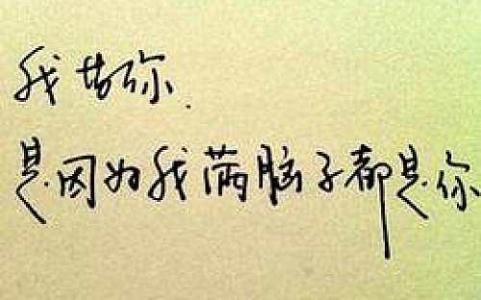 我告你.
是因为我满脑子都是你